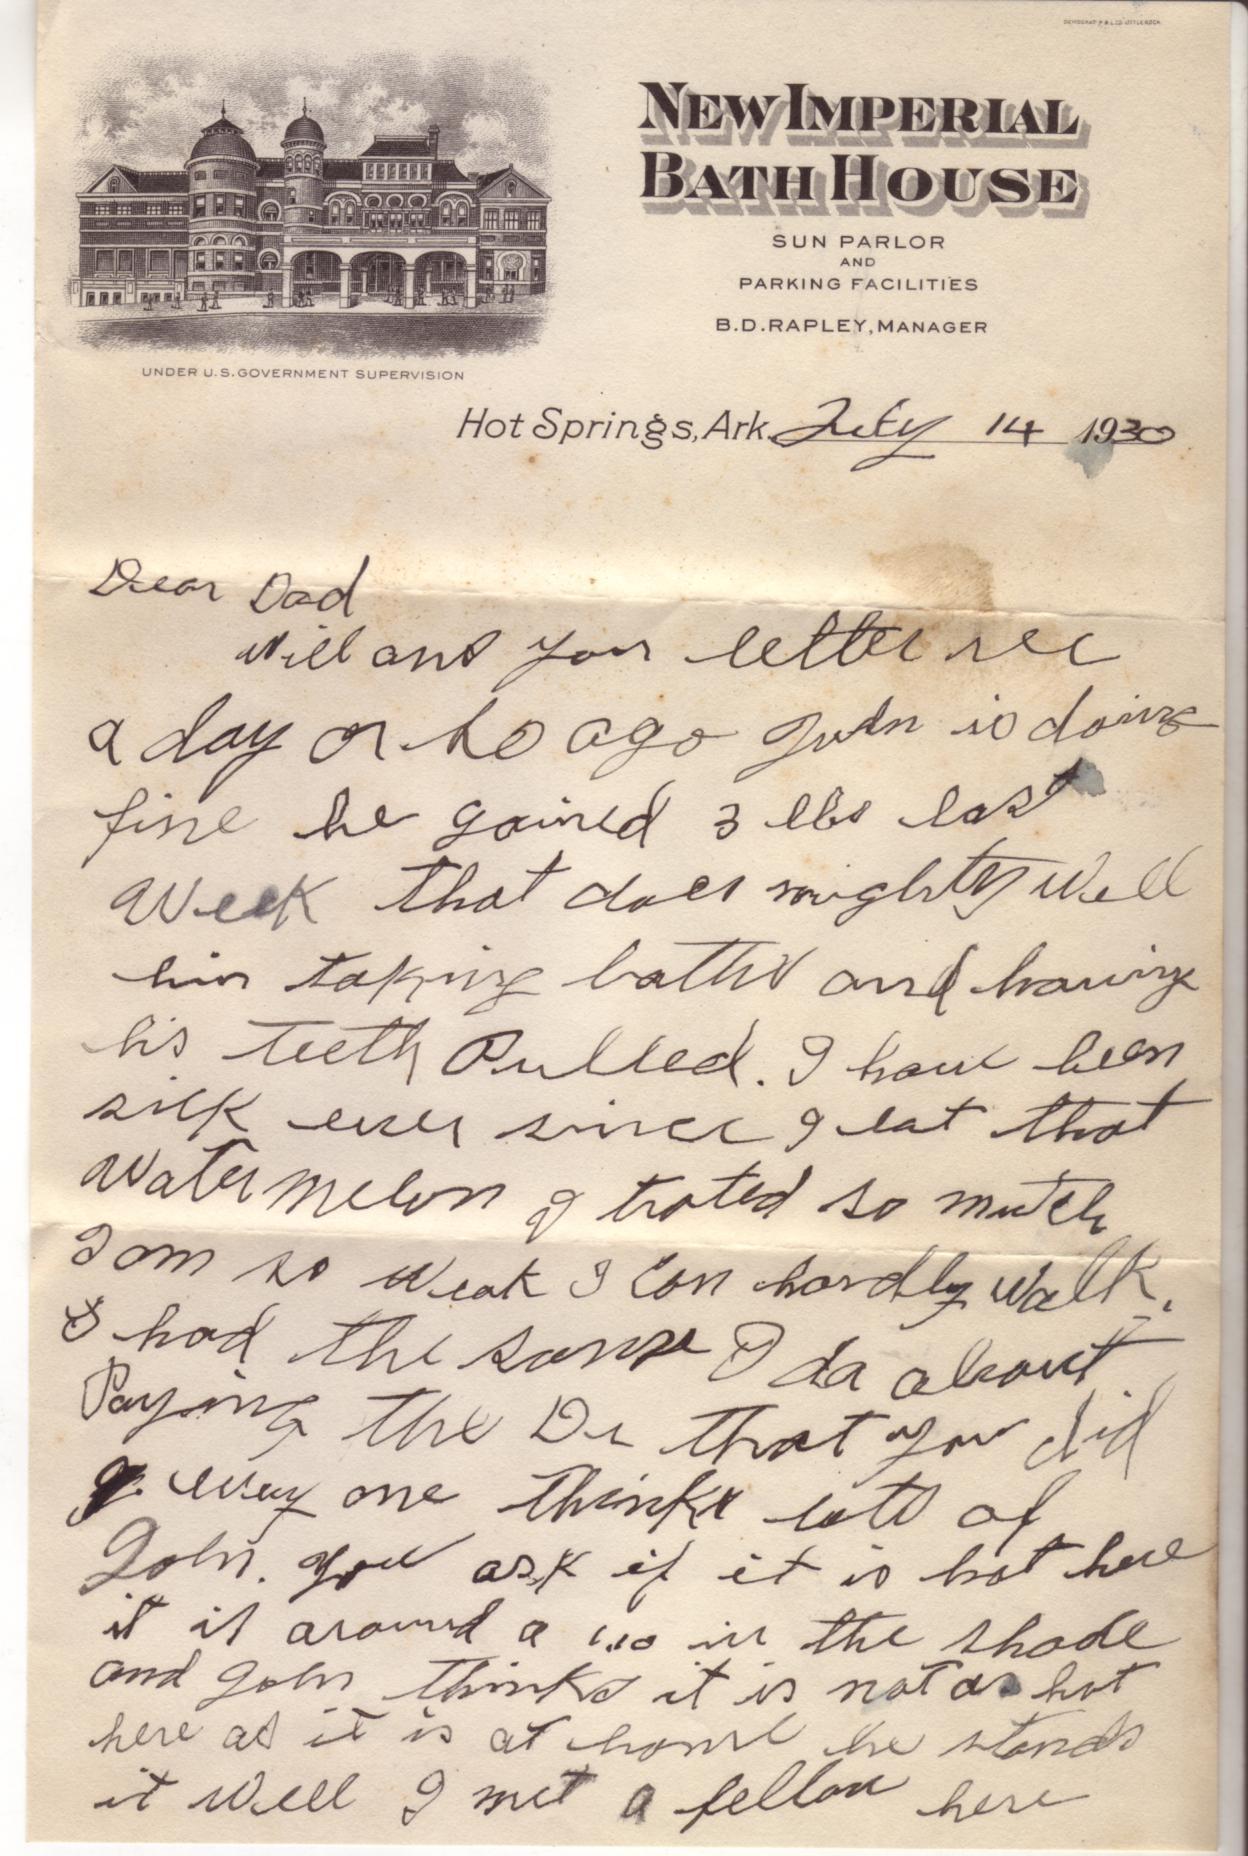 DEMOCRAT P. & L. CO. LITTLE ROCK
NEW IMPERIAL
BATH HOUSE
SUN PARLOR
AND
PARKING FACILITIES
B.D. RAPLEY, MANAGER
UNDER U.S. GOVERNMENT SUPERVISION
Hot Springs, Ark. July 14 1930
Dear Dad
Will ans your letter rec
a day or so ago John is doing
fine he gained 3 lbs last
Week that does mighty Well
him taking baths and having
his teeth Pulled. I have been
sick ever since I eat that
Watermelon I troted so mutch
I am so Weak I can hardly Walk.
I had the same I da about
Paying the Dr that you did
every one thinks lots of
John. you ask if it is hot here
it is around a 110 in the shade
and John thinks it is not as hot
here as it is at home he stands
it Well I met a fellow here